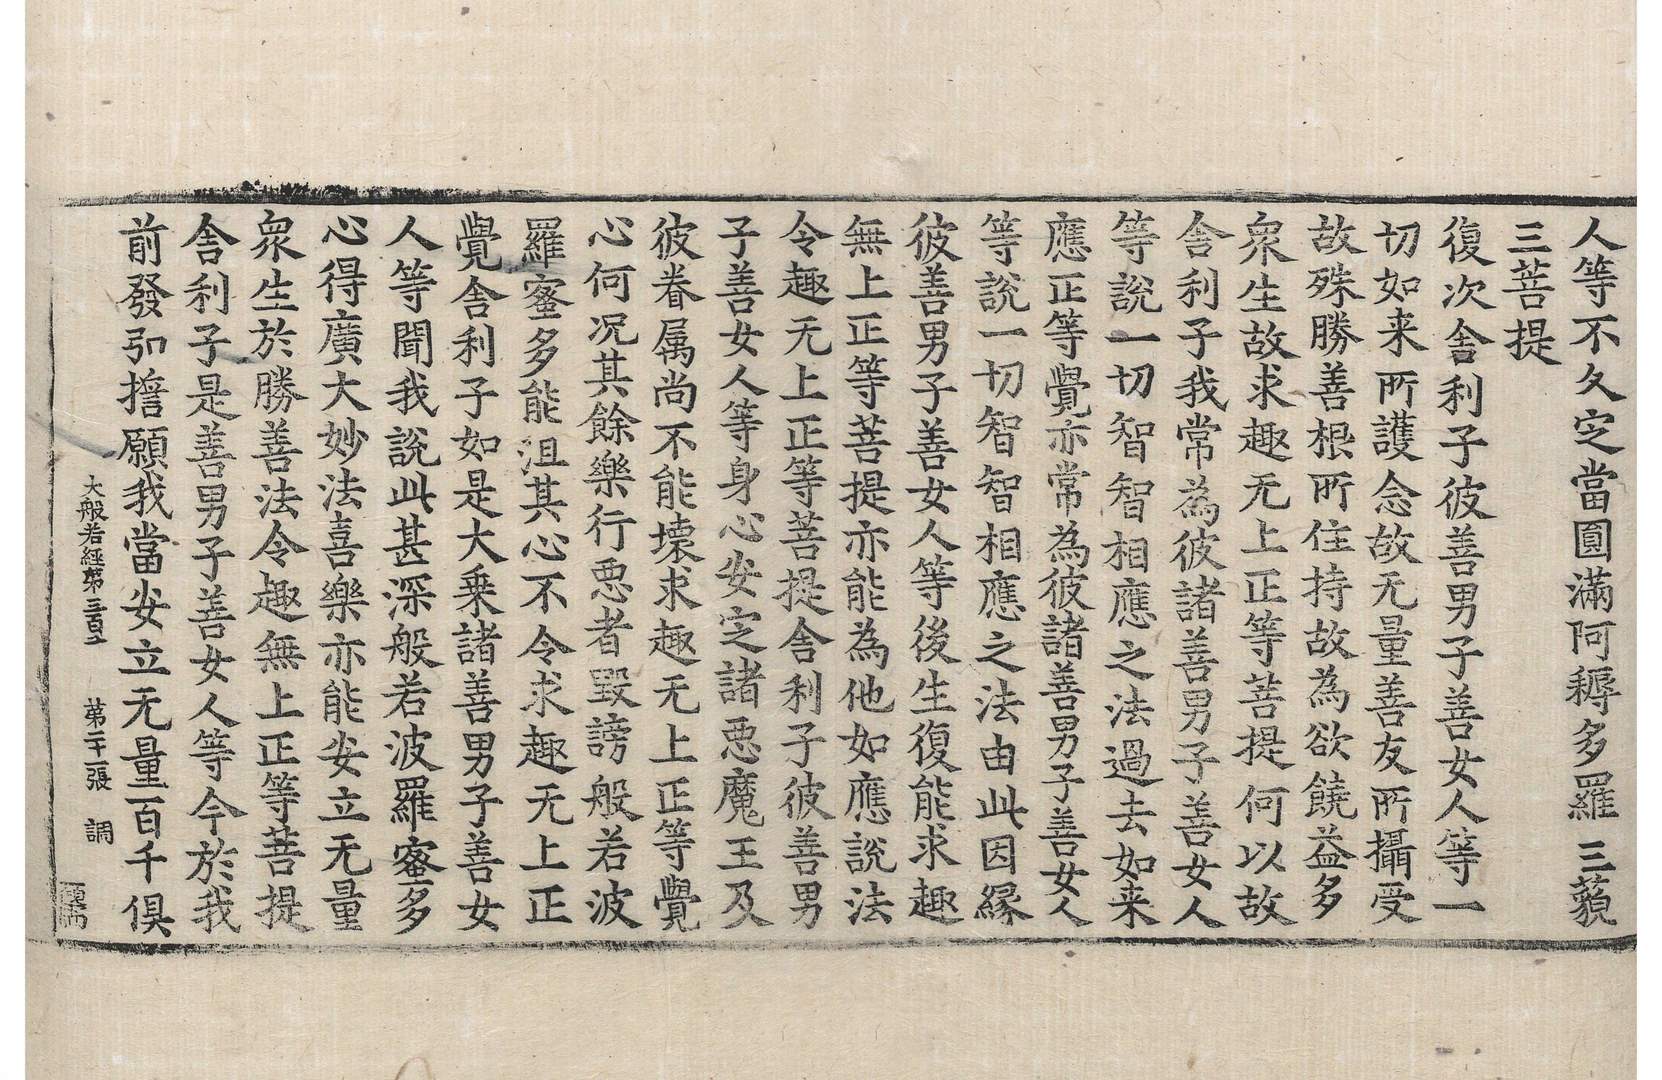 人等不久定當圓滿阿耨多羅三藐
三菩提
復次舍利子彼善男子善女人等一
切如来所護念故无量善友所攝受
故殊勝善根所住持故為欲饒益多
衆生故求趣无上正等菩提何以故
舍利子我常為彼諸善男子善女人
等說一切智智相應之法過去如来
應正等覺亦常為彼諸善男子善女人
等說一切智智相應之法由此因緣
彼善男子善女人等後生復能求趣
無上正等菩提亦能為他如應說法
令趣无上正等菩提舍利子彼善男
子善女人等身心安定諸惡魔王及
彼眷属尚不能壞求趣无上正等覺
心何况其餘樂行惡者毀謗般若波
羅蜜多能沮其心不令求趣无上正
覺舍利子如是大乗諸善男子善女
人等聞我說此甚深般若波羅蜜多
心得廣大妙法喜樂亦能安立无量
衆生於勝善法令趣無上正等菩提
舍利子是善男子善女人等今於我
前發弘擔願我當安立无量百千俱
大般若經第三百二 第二十一張 調